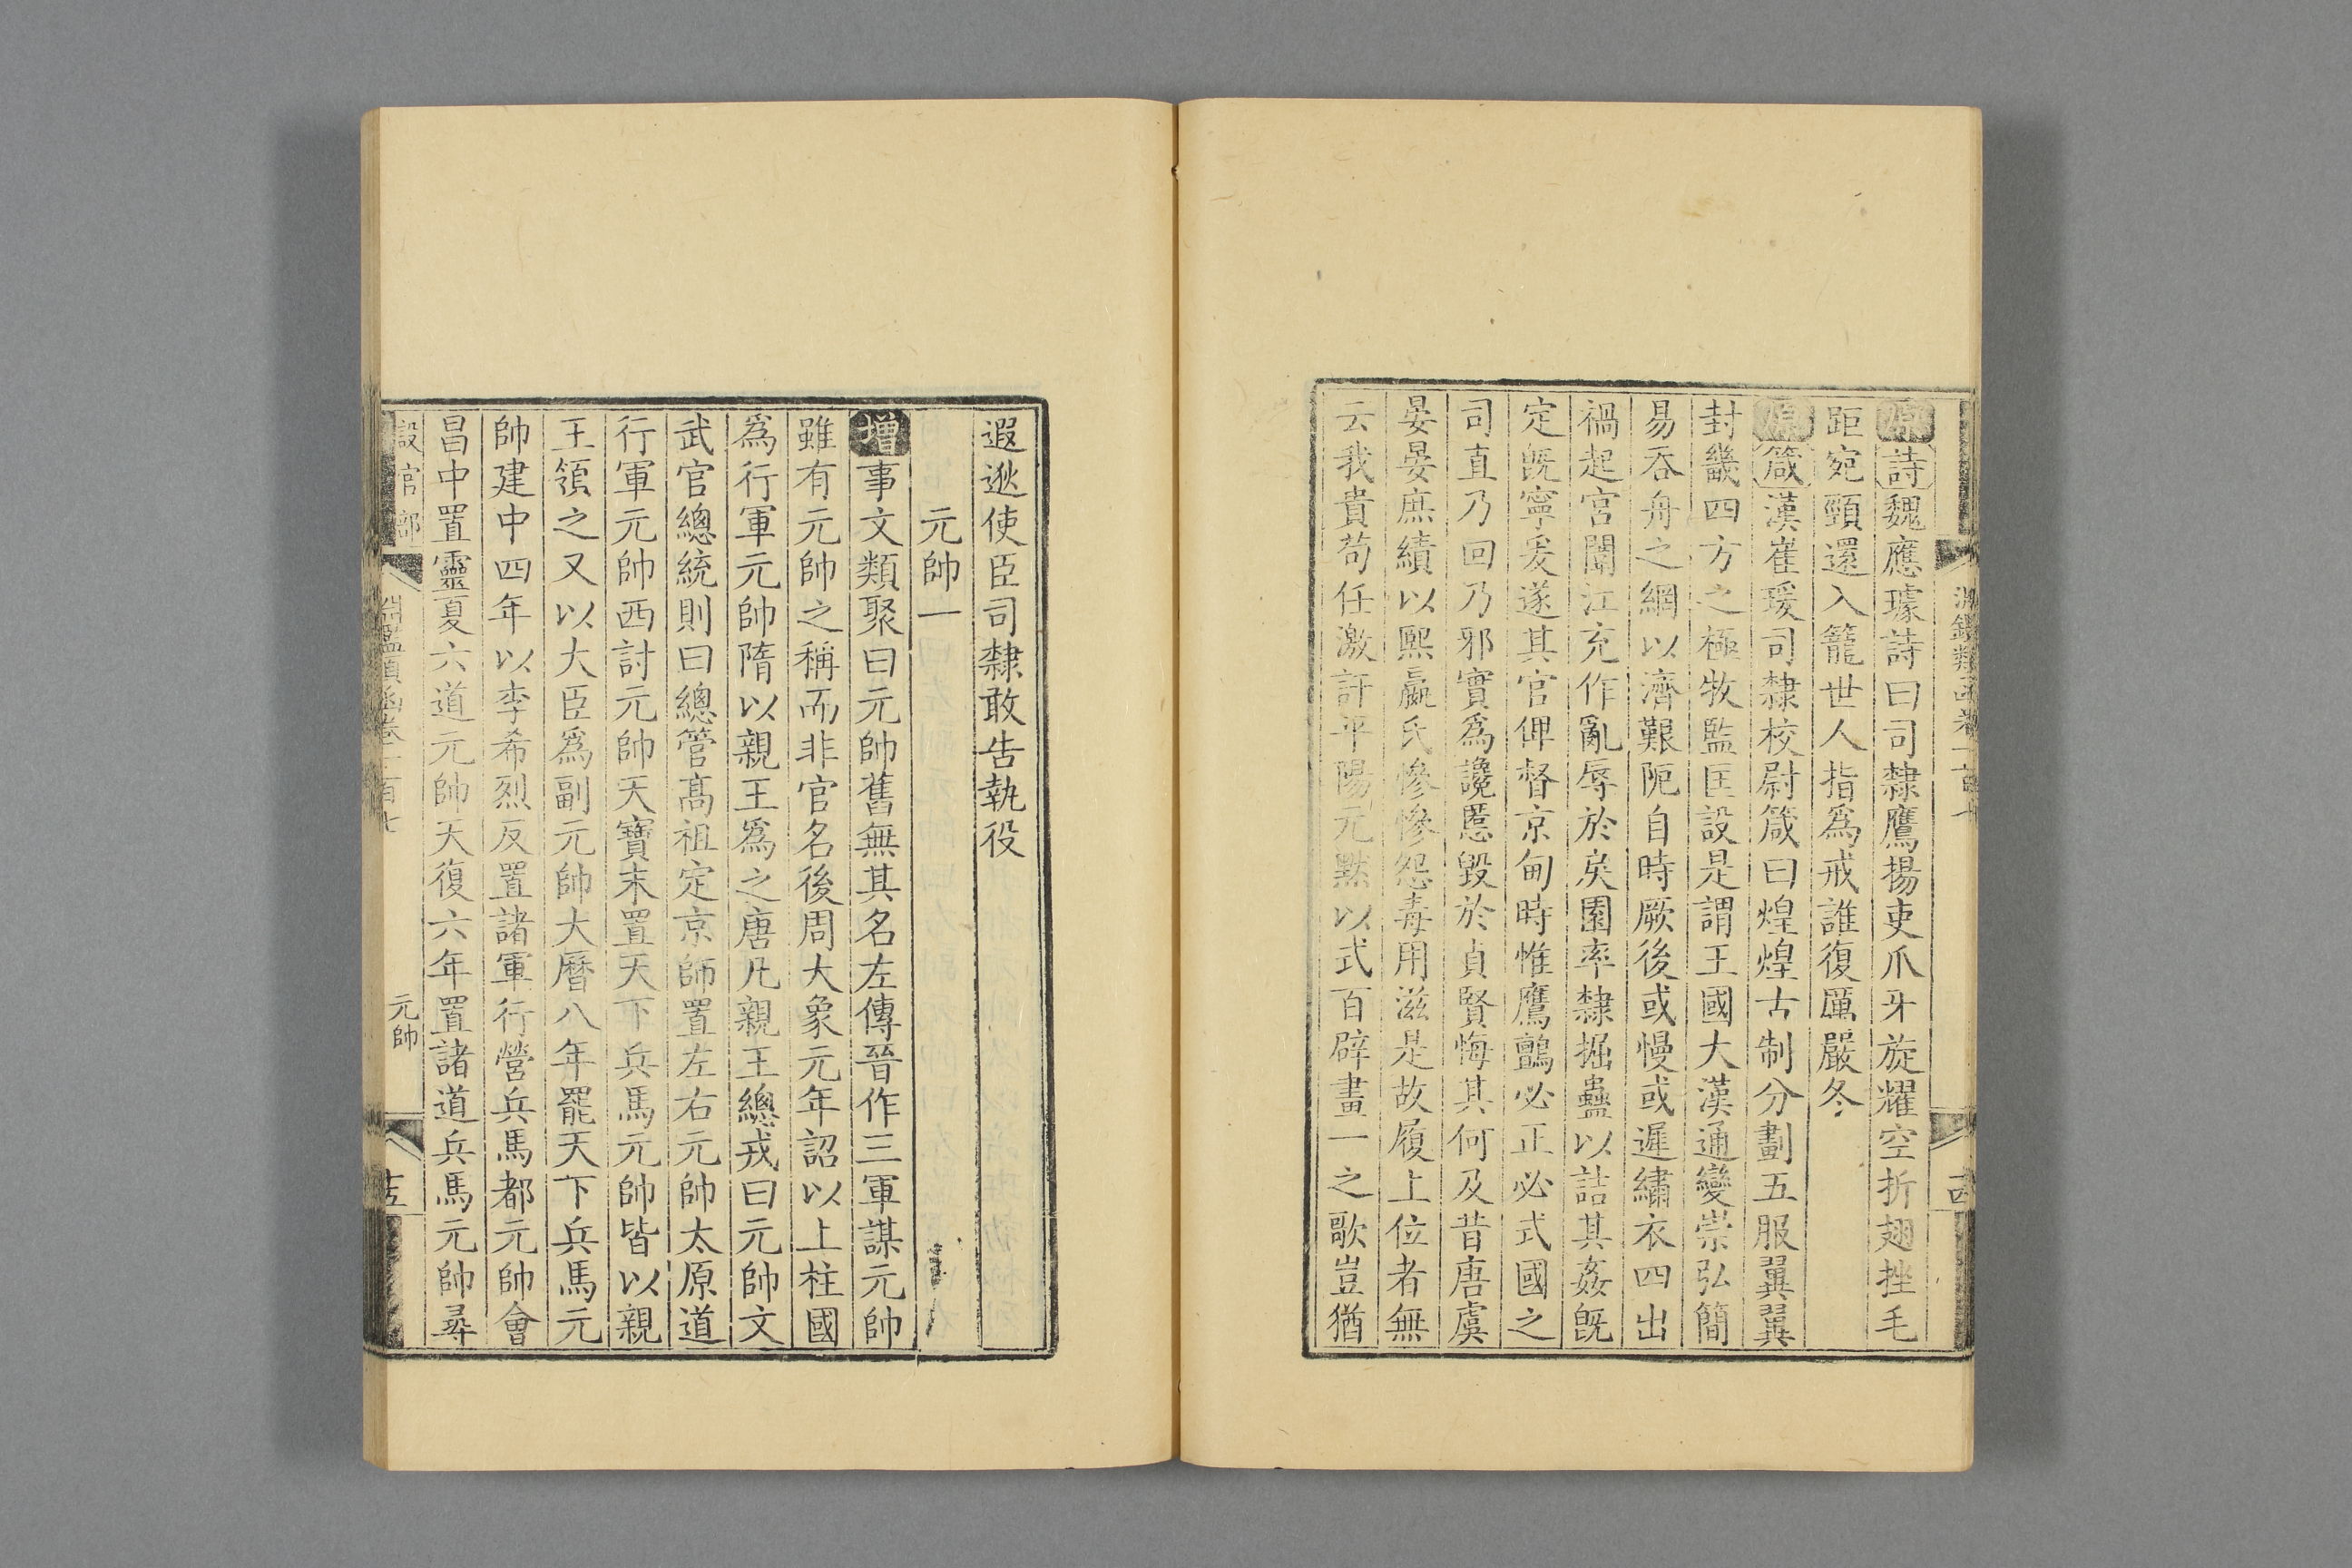 原詩魏應璩詩曰司隸鷹揚吏爪牙旋耀空折翅挫毛
距宛頸還入籠世人指爲戒誰復厲嚴冬
原箴漢崔瑗司隸校尉箴曰煌煌古制分劃五服翼翼
封畿四方之極牧監匡設是謂王國大漢通變崇弘簡
易吞舟之網以濟艱阨自時厥後或慢或遲繡衣四出
禍起宮闈江充作亂辱於戾園率隸掘蠱以詰其姦旣
定旣寧爰遂其官俾督京甸時惟鷹鸇必正必式國之
司直乃回乃邪實爲讒慝毀於貞賢悔其何及昔唐虞
晏晏庶績以熙嬴氏慘慘怨毒用滋是故履上位者無
云我貴苟任激訐平陽元默以式百辟畫一之歌豈猶
淵鑑類函卷一百七
遐逖使臣司隸敢告執役
元帥一
增事文類聚曰元帥舊無其名左傳晉作三軍謀元帥
雖有元帥之稱而非官名後周大象元年詔以上柱國
爲行軍元帥隋以親王爲之唐凡親王總戎曰元帥文
武官總統則曰總管髙祖定京師置左右元帥太原道
行軍元帥西討元帥天寶末置天下兵馬元帥皆以親
王領之又以大臣爲副元帥大曆八年罷天下兵馬元
帥建中四年以李希烈反置諸軍行營兵馬都元帥會
昌中置靈夏六道元帥天復六年置諸道兵馬元帥尋
設官部
淵鑑類函卷一百七
元帥
十五